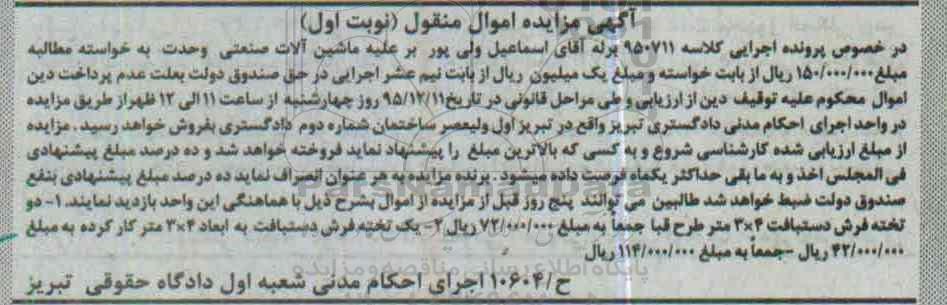 آگهی مزایده اموال منقول (نوبت اول)
در خصوص پرونده اجرایی کلاسه ۹۵۰۷۱۱ برله آقای اسماعیل ولی پور بر علیه ماشین آلات صنعتی وحدت به خواسته مطالبه
مبلغ ۱۵۰/۰۰۰/۰۰۰ ریال از بابت خواسته و مبلغ یک میلیون ریال از بابت نیم عشر اجرایی در حق صندوق دولت بعلت عدم پرداخت دین
اموال محکوم علیه توقیف دین از ارزیابی و طی مراحل قانونی در تاریخ ۹۵/۱۲/۱۱ روز چهارشنبه از ساعت ۱۱ الی ۱۲ ظهر از طریق مزایده
در واحد اجرای احکام مدنی دادگستری تبریز واقع در تبریز اول ولیعصر ساختمان شماره دوم دادگستری بفروش خواهد رسید . مزایده
از مبلغ ارزیابی شده کارشناسی شروع و به کسی که بالاترین مبلغ را پیشنهاد نماید فروخته خواهد شد و ده درصد مبلغ پیشنهادی
فی المجلس اخذ و به ما بقی حداکثر یکماه فرصت داده میشود . برنده مزایده به هر عنوان انصراف نماید ده درصد مبلغ پیشنهادی بنفع
صندوق دولت ضبط خواهد شد طالبین می توانند پنج روز قبل از مزایده از اموال بشرح ذیل با هماهنگی این واحد بازدید نمایند. ۱- دو
تخته فرش دستبافت ۴×۳ متر طرح قبا جمعاً به مبلغ ۷۲/۰۰۰/۰۰۰ ریال ۲- یک تخته فرش دستبافت به ابعاد ۴×۳ متر کار کرده به مبلغ
۴۲/۰۰۰/۰۰۰ ریال -جمعاً به مبلغ ۱۱۴/۰۰۰/۰۰۰ ریال
ح/۱۰۶۰۴ اجرای احکام مدنی شعبه اول دادگاه حقوقی تبریز
ParsNamadData
پایگاه اطلاع رسانی مناقصه و مزایده